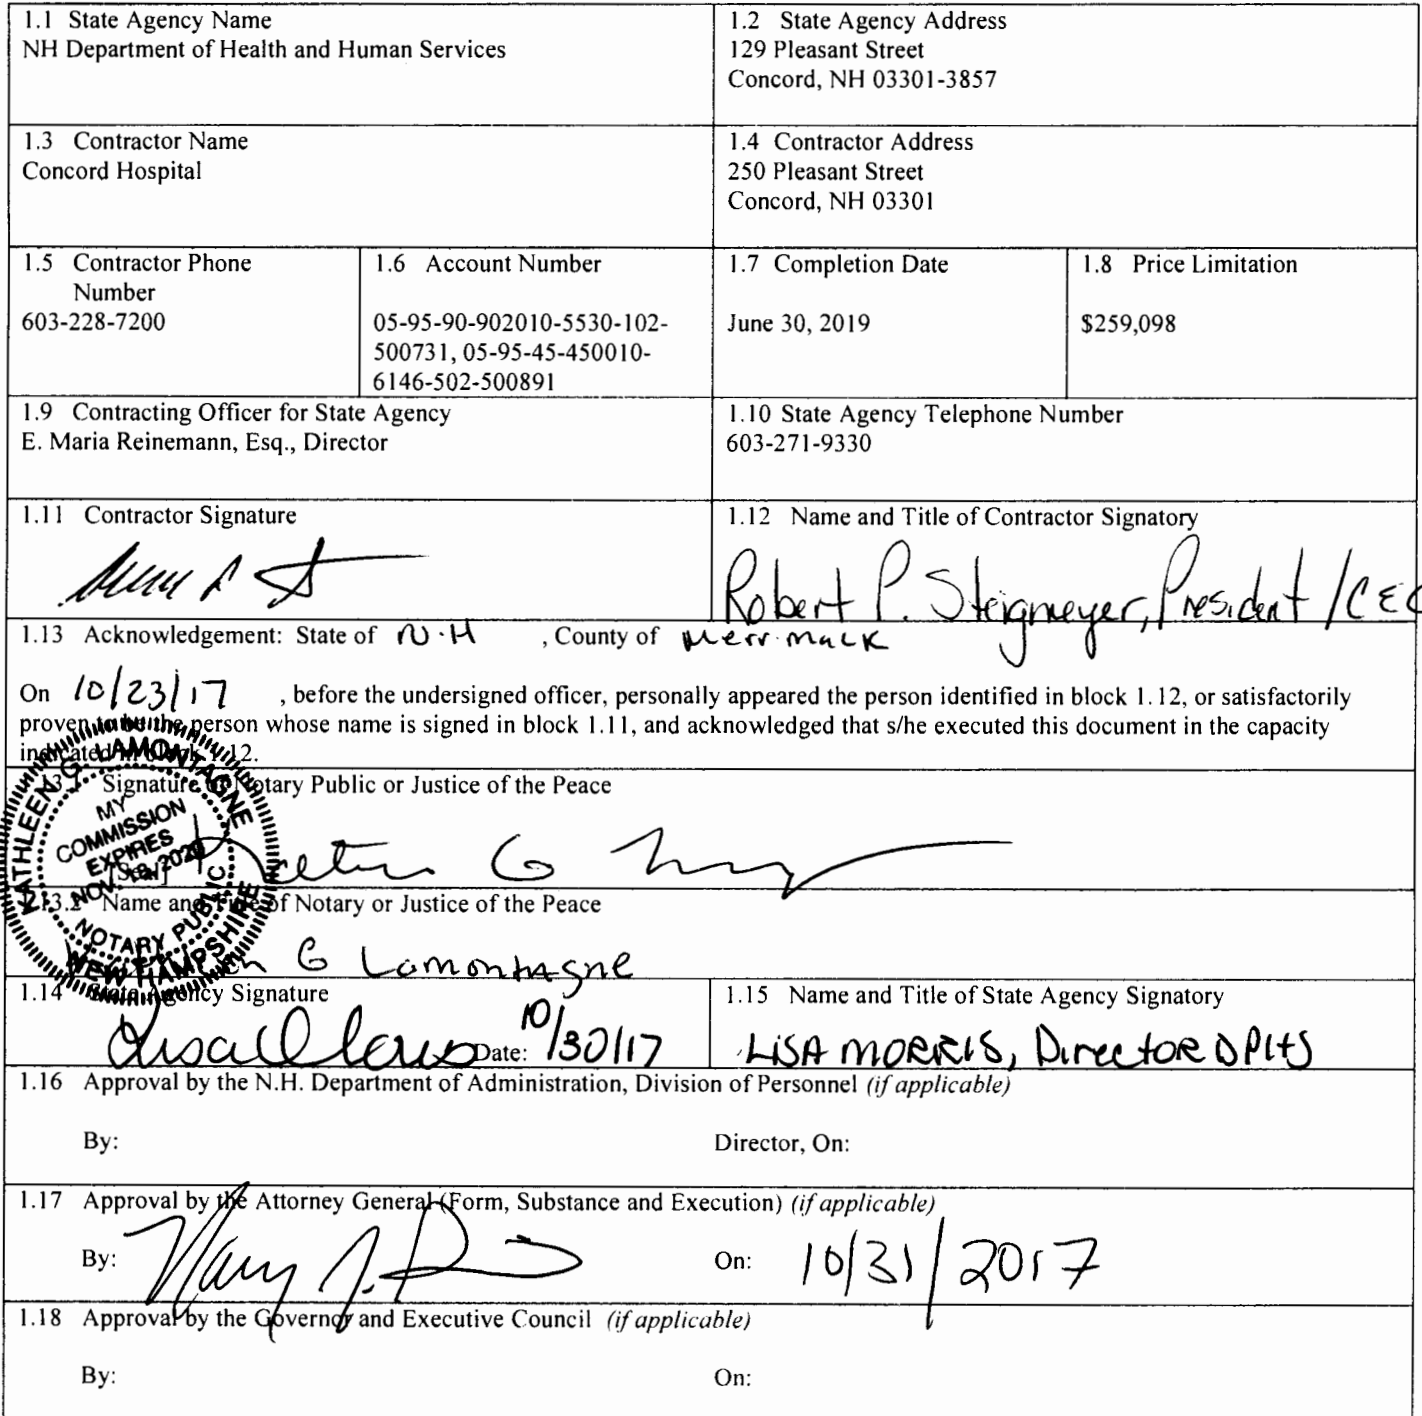 1.1 State Agency Name
NH Department of Health and Human Services
1.2 State Agency Address
129 Pleasant Street
Concord, NH 03301-3857
1.3 Contractor Name
Concord Hospital
1.4 Contractor Address
250 Pleasant Street
Concord, NH 03301
1.5 Contractor Phone
Number
603-228-7200
1.6 Account Number
05-95-90-902010-5530-102-
500731, 05-95-45-450010-
6146-502-500891
1.7 Completion Date
June 30, 2019
1.8 Price Limitation
$259,098
1.9 Contracting Officer for State Agency
E. Maria Reinemann, Esq., Director
1.10 State Agency Telephone Number
603-271-9330
1.11 Contractor Signature
1.12 Name and Title of Contractor Signatory
Robert P. Steigmeyer, President / CEO
1.13 Acknowledgement: State of N.H , County of Merrimack
On 10/23/17 , before the undersigned officer, personally appeared the person identified in block 1.12, or satisfactorily
proven to be the person whose name is signed in block 1.11, and acknowledged that s/he executed this document in the capacity
indicated in block 1.12.
1.13.1 Signature of Notary Public or Justice of the Peace
KATHLEEN G. LAMONTAGNE
MY
COMMISSION
EXPIRES
NOV. 18, 2020
NOTARY PUBLIC
NEW HAMPSHIRE
[Seal]
1.13.2 Name and Title of Notary or Justice of the Peace
G Lamontagne
1.14 State Agency Signature
Date: 10/30/17
1.15 Name and Title of State Agency Signatory
LISA MORRIS, Director DPHS
1.16 Approval by the N.H. Department of Administration, Division of Personnel (if applicable)
By: Director, On:
1.17 Approval by the Attorney General (Form, Substance and Execution) (if applicable)
By: On: 10/31/2017
1.18 Approval by the Governor and Executive Council (if applicable)
By: On: